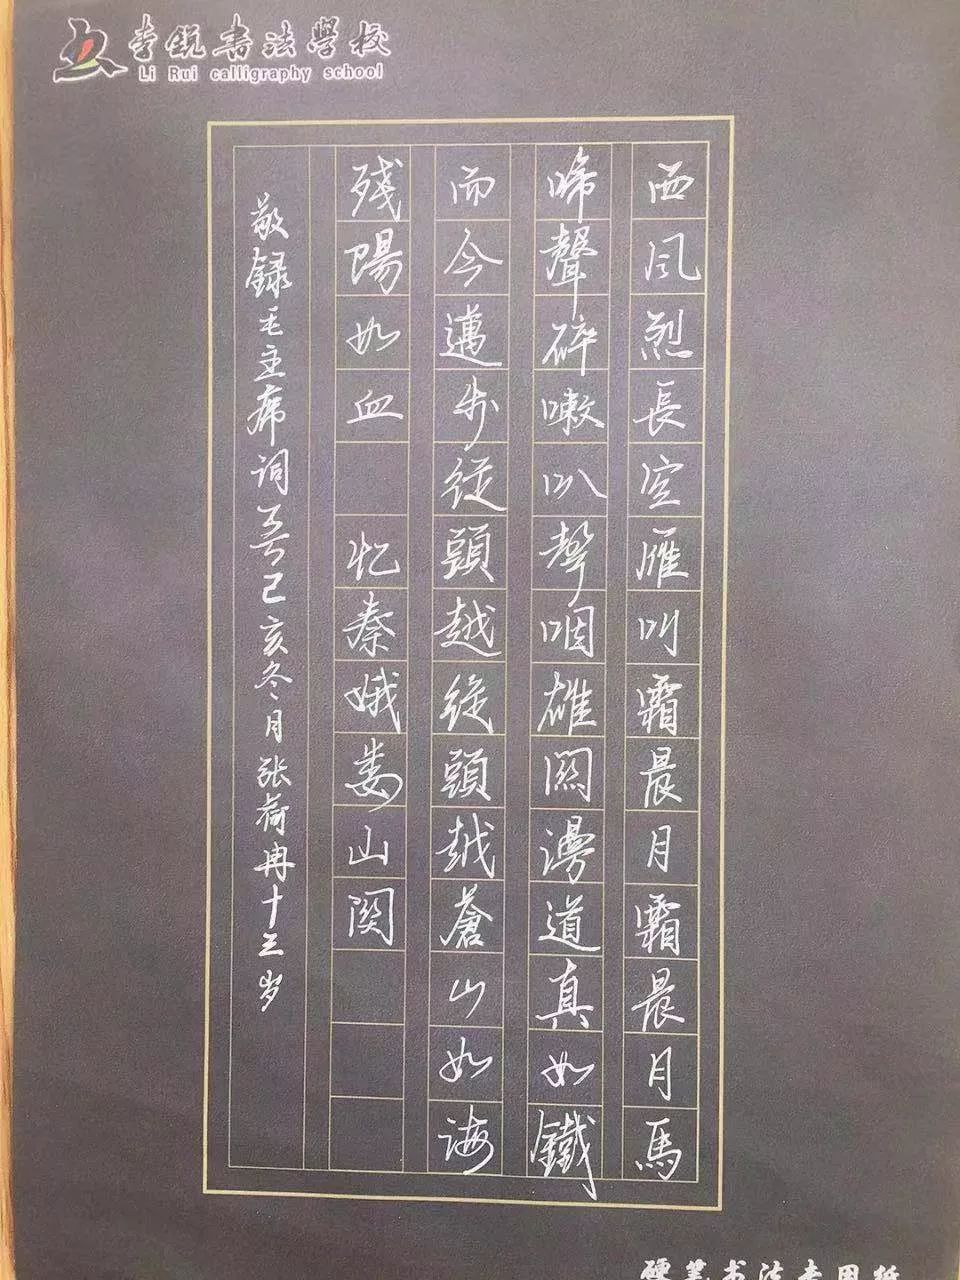 李銳书法學校
Li Rui calligraphy school
西风烈長空雁叫霜晨月霜晨月馬
啼聲碎嗽叭聲咽雄関漫道真如鐵
而今邁步従頭越従頭越蒼山如海
残陽如血 忆秦娥娄山関
敬録毛主席词 己亥冬月张荷冉十三岁
硬笔书法专用纸